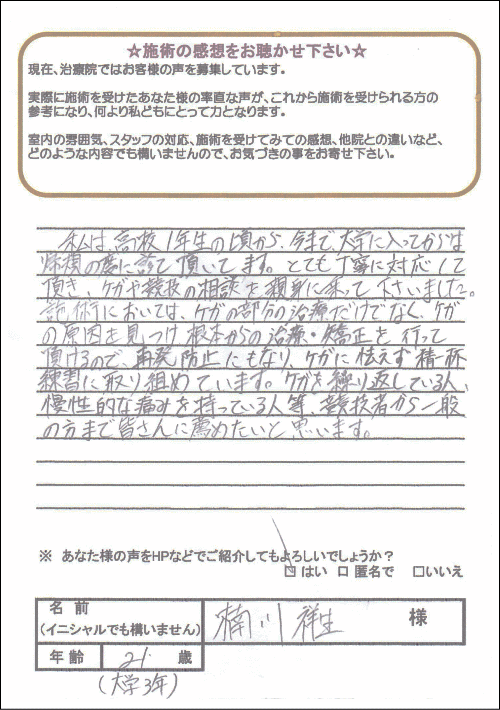 ☆施術の感想をお聴かせ下さい☆
現在、治療院ではお客様の声を募集しています。
実際に施術を受けたあなた様の率直な声が、これから施術を受けられる方の
参考になり、何より私どもにとって力となります。
室内の雰囲気、スタッフの対応、施術を受けてみての感想、他院との違いなど、
どのような内容でも構いませんので、お気づきの事をお寄せ下さい。
私は、高校1年生の頃から、今まで、大学に入ってからは
帰省の度に診て頂いてます。とても丁寧に対応して
頂き、ケガや競技の相談も親身に乗って下さいました。
施術においては、ケガの部分の治療だけでなく、ケガ
の原因を見つけ根本からの治療・矯正を行って
頂けるので、再発防止にもなり、ケガに怯えず精一杯
練習に取り組めています。ケガを繰り返している人、
慢性的な痛みを持っている人等、競技者から一般
の方まで皆さんに薦めたいと思います。
※ あなた様の声をHPなどでご紹介してもよろしいでしょうか?
☑はい ロ 匿名で □いいえ
名前
(イニシャルでも構いません)
楠川 祥生 様
年齢 21 歳
(大学3年)